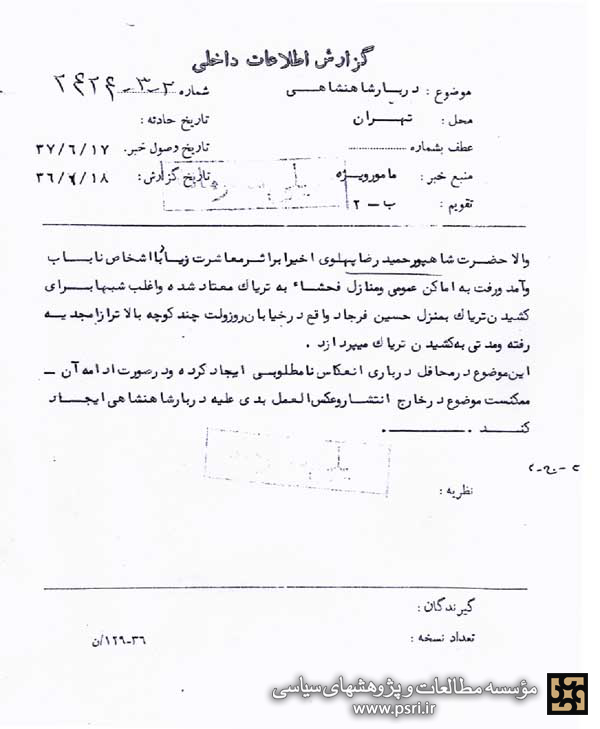 گزارش اطلاعات داخلی
موضوع : دربار شاهنشاهی
شماره
محل : تهران
تاریخ حادثه :
عطف بشماره
تاریخ وصول خبر. ۳۷/۶/۱۷
منبع خبر : مامور ویژه
تاریخ گزارش : ۳۶/۷/۱۸
تقویم : ب - ۲
والا حضرت شاهپور حمید رضا پهلوی اخیرا بر اثر معاشرت زیاد با اشخاص ناباب
وآمد ورفت به اماکن عمومی ومنازل فحشاء به تریاک معتاد شده واغلب شبها برای
کشیدن تریاک بمنزل حسین فرجاد واقع در خیابان روزولت چند کوچه بالاتر از امجدیه
رفته ومدتی به کشیدن تریاک میپردازد .
این موضوع در محافل درباری انعکاس نامطلوبی ایجاد کرده ودرصورت ادامه آن -
ممکنست موضوع در خارج انتشار وعکس العمل بدی علیه دربار شاهنشاهی ایجاد
کند .
نظریه :
گیرندگان :
تعداد نسخه :
۱۲۹-۳۶/ن
مؤسسه مطالعات و پژوهشهای سیاسی
www.psri.ir